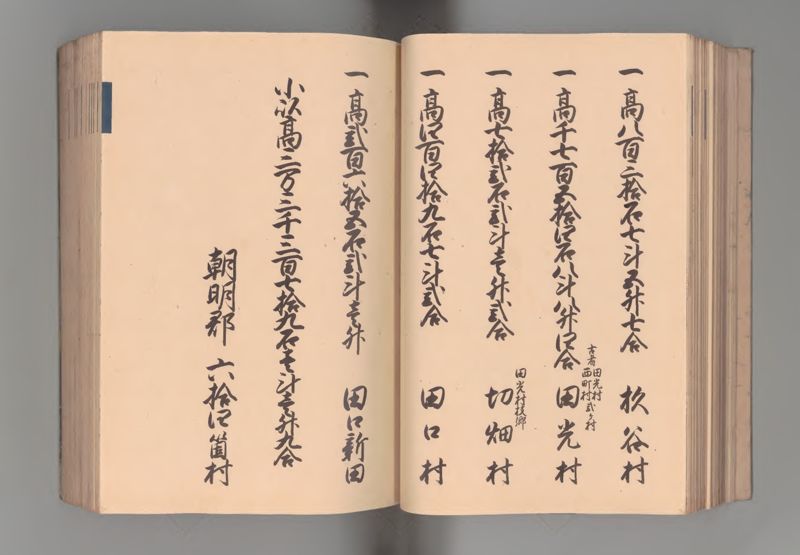 一高八百三拾石七斗五升七合 杉谷村
一高千七百五拾四石八斗八升四合 田光村
古者田光村
西町村弐ケ村
一高七拾弐石弐斗壱升弐合 切畑村
田光村枝郷
一高四百四拾九石七斗弐合 田口村
一高弐百六拾五石弐斗壱升 田口新田
小以高二万二千三百七拾九石壱斗壱升九合
朝明郡 六拾四箇村